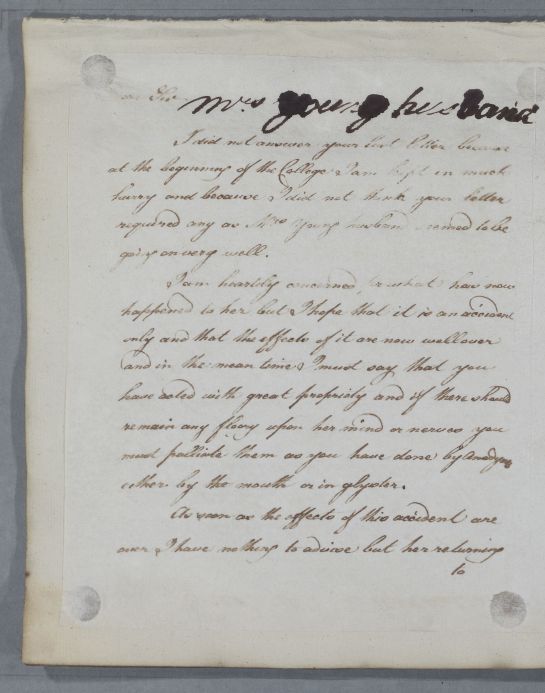 Dr Sir
Mrs Young husband
I did not answer your last letter because
at the beginning of the College I am kept in much
hurry and because I did not think your letter
required any as Mrs Young husband seemed to be
going on very well.
I am heartily concerned for what has now
happened to her but I hope that it is an accident
only and that the effects of it are now well over
and in the mean time I must say that you
have acted with great propriety and if there should
remain any flurry upon her mind or nerves you
must palliate them as you have done by Anodynes
either by the mouth or in glyster.
As soon as the effects of this accident are
over I have nothing to advise but her returning
to